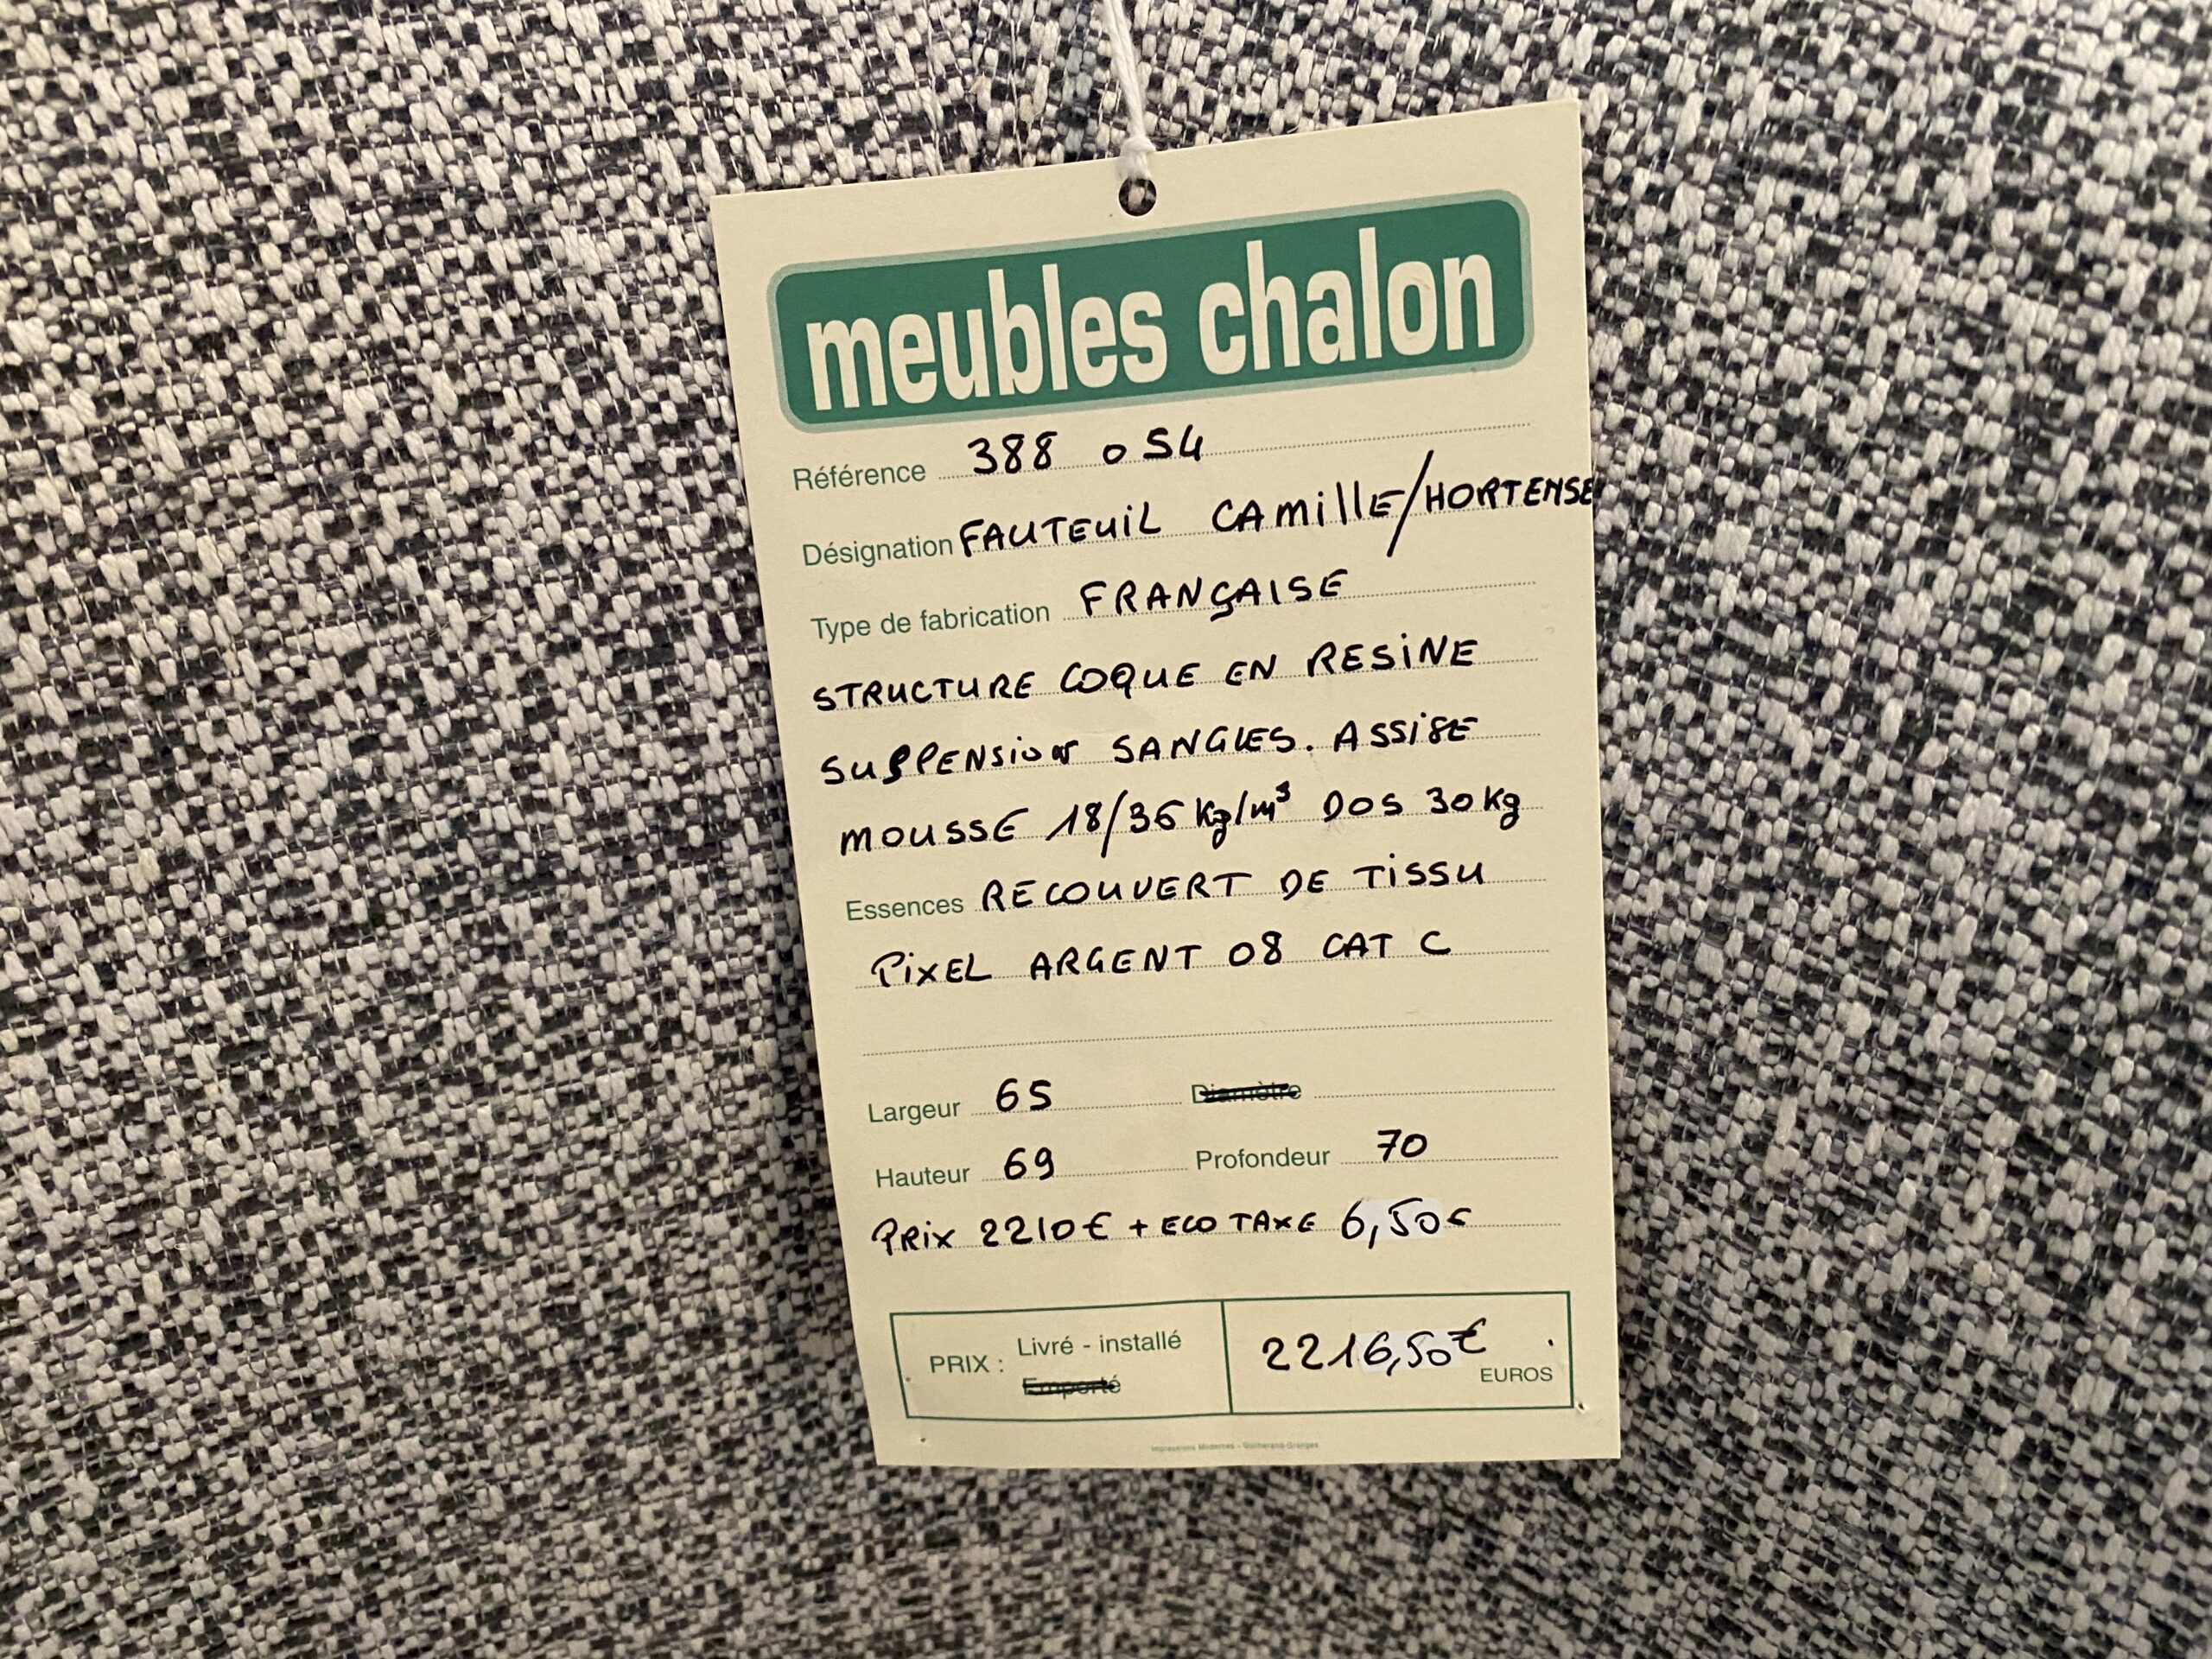 meubles chalon
Référence 388 054
Désignation FAUTEUIL CAMILLE/HORTENSE
Type de fabrication FRANÇAISE
STRUCTURE COQUE EN RESINE
SUSPENSION SANGLES. ASSISE
MOUSSE 18/36 Kg/m³ DOS 30 Kg
Essences RECOUVERT DE TISSU
PIXEL ARGENT 08 CAT C
Largeur 65 Diamètre
Hauteur 69 Profondeur 70
PRIX 2210€ + ECO TAXE 6,50€
PRIX : Livré - installé 2216,50€
Emporté EUROS
Impressions Modernes - Guilherand-Granges